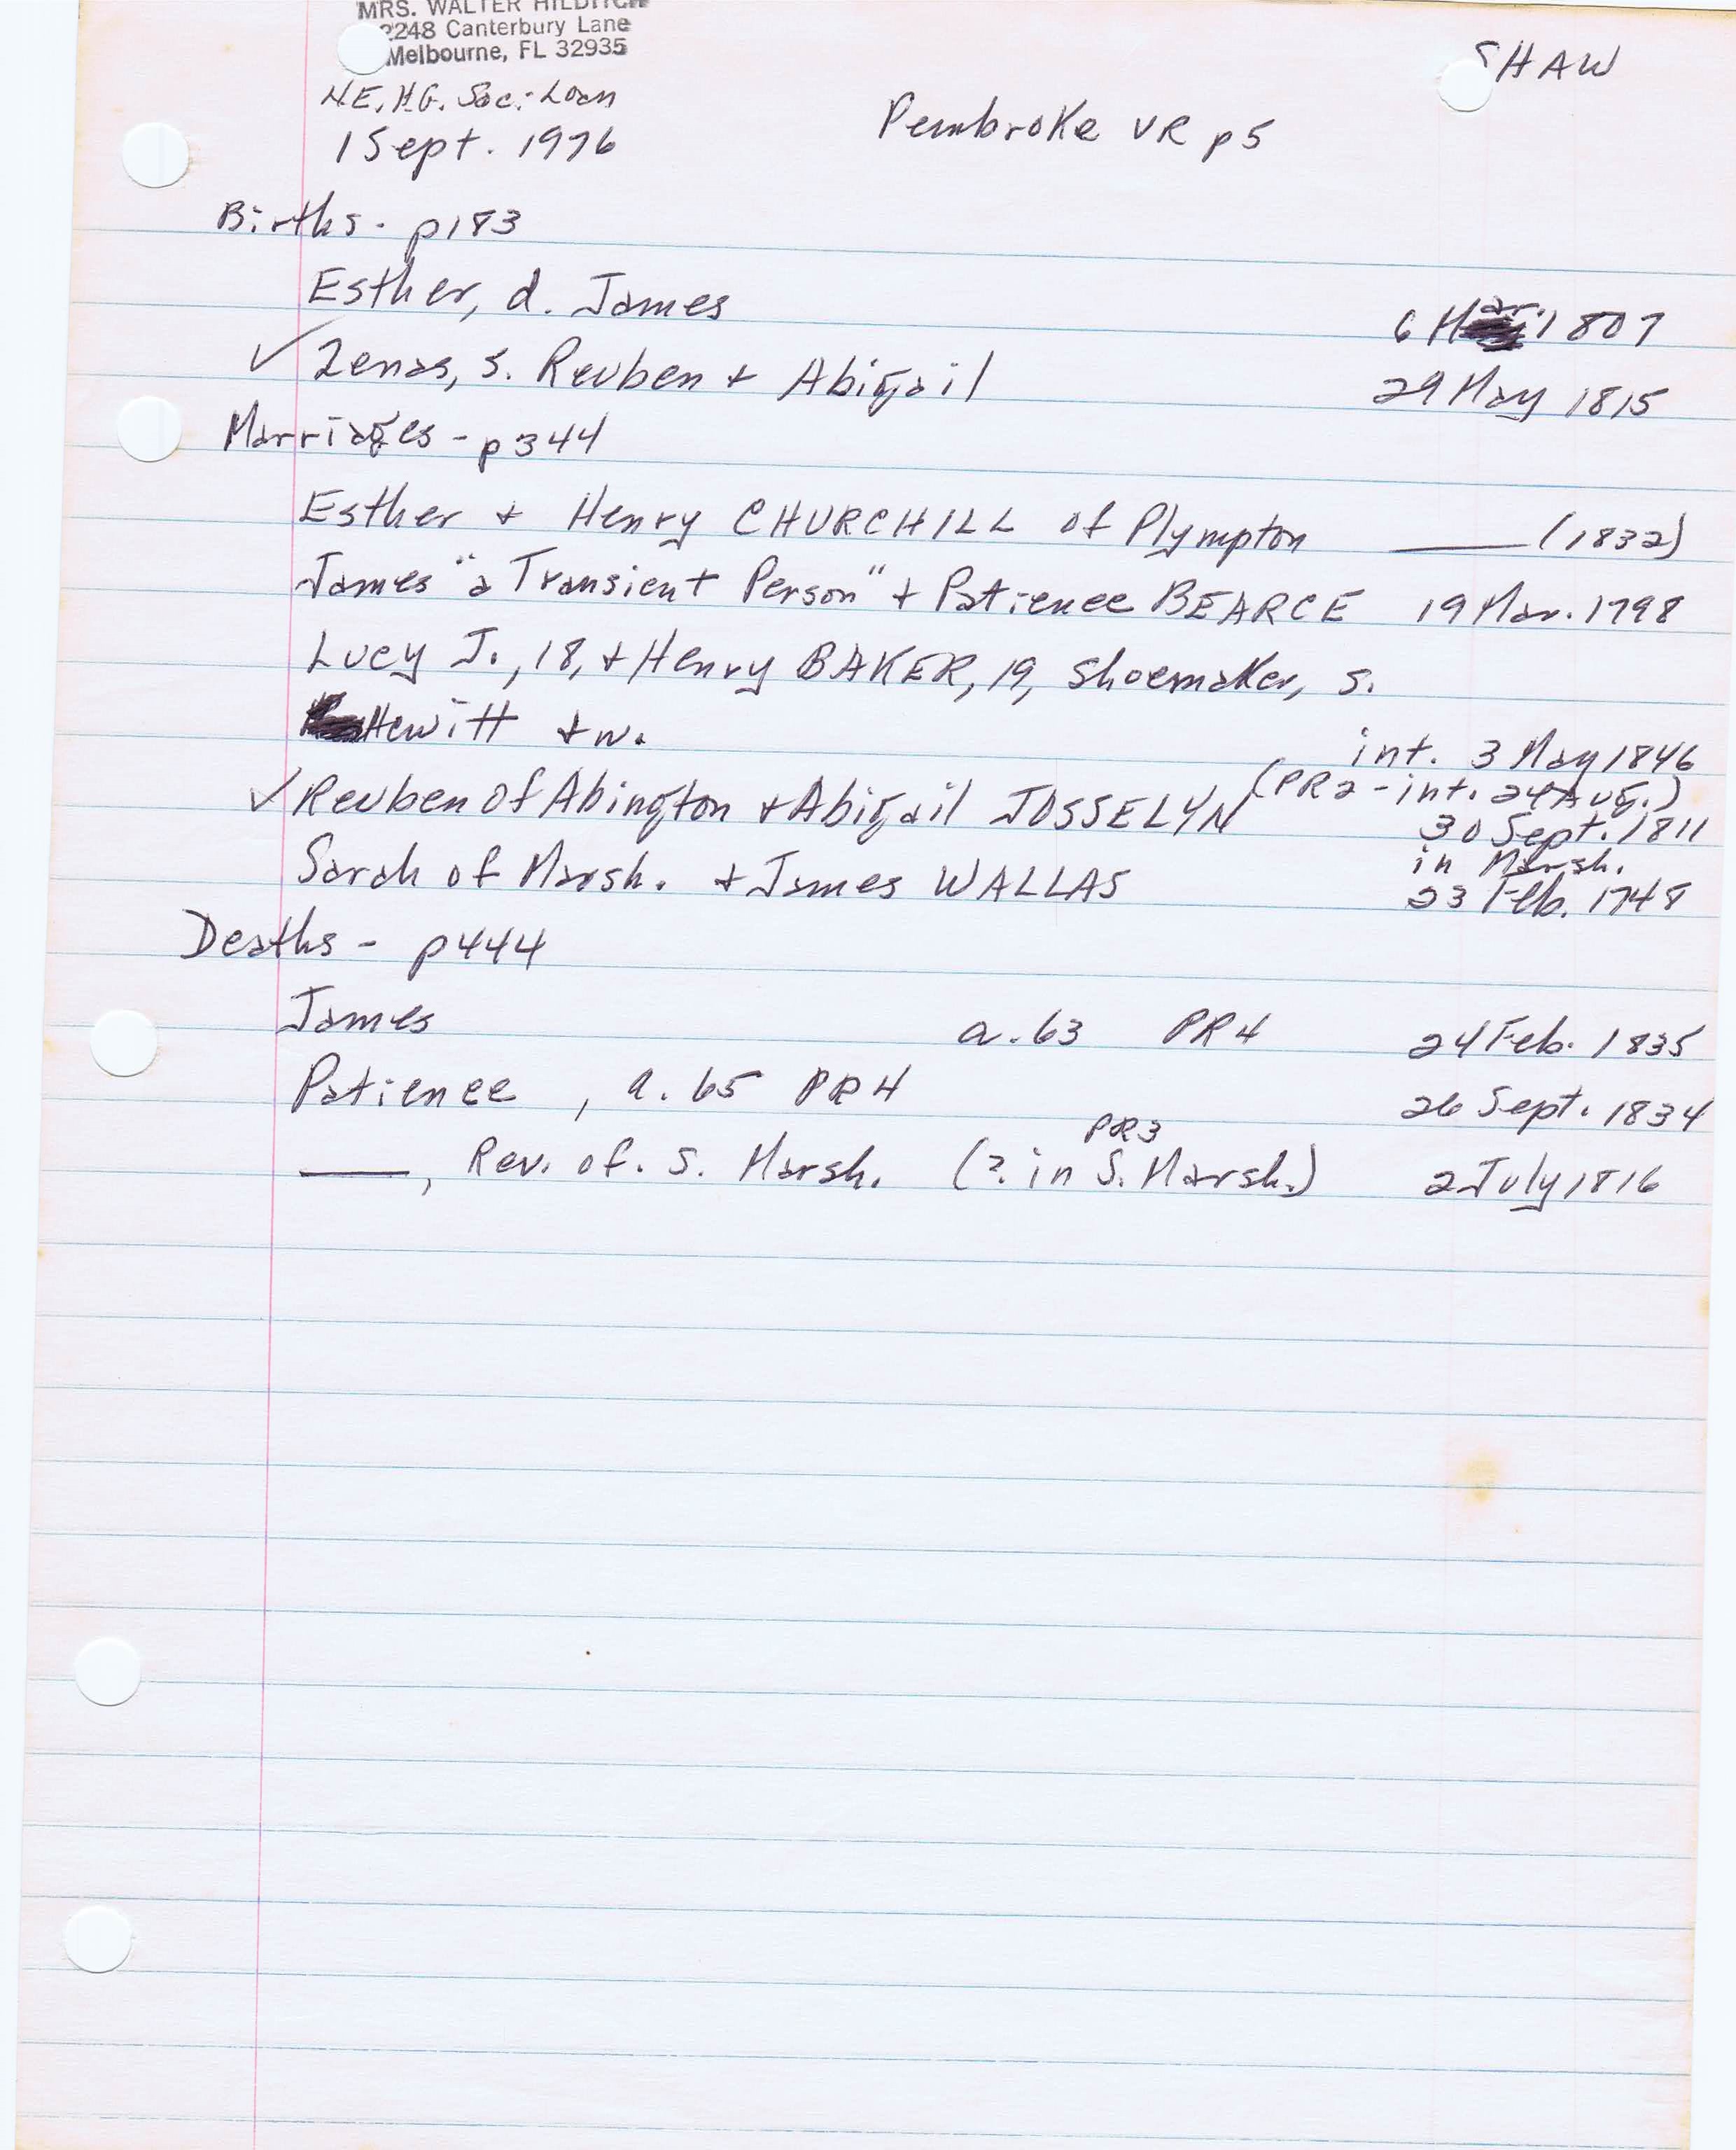 MRS. WALTER HILDITCH
2248 Canterbury Lane
Melbourne, FL 32935
SHAW
N.E.H.G. Soc.-Loan
1 Sept. 1976
Pembroke VR p5
Births - p183
Esther, d. James 6 Mar. 1807
✓ Zenas, s. Reuben + Abigail 29 May 1815
Marriages - p344
Esther + Henry CHURCHILL of Plympton ——— (1832)
James "a Transient Person" + Patience BEARCE 19 Mar. 1798
Lucy J., 18, + Henry BAKER, 19, shoemaker, s.
Hewitt + w. int. 3 May 1846
(PR2 - int. 24 Aug.)
✓ Reuben of Abington + Abigail JOSSELYN 30 Sept. 1811
in Marsh.
Sarah of Marsh. + James WALLAS 23 Feb. 1748
Deaths - p444
James a. 63 PR4 24 Feb. 1835
Patience , a. 65 PR4 26 Sept. 1834
PR3
———, Rev. of. S. Marsh. (?. in S. Marsh.) 2 July 1816